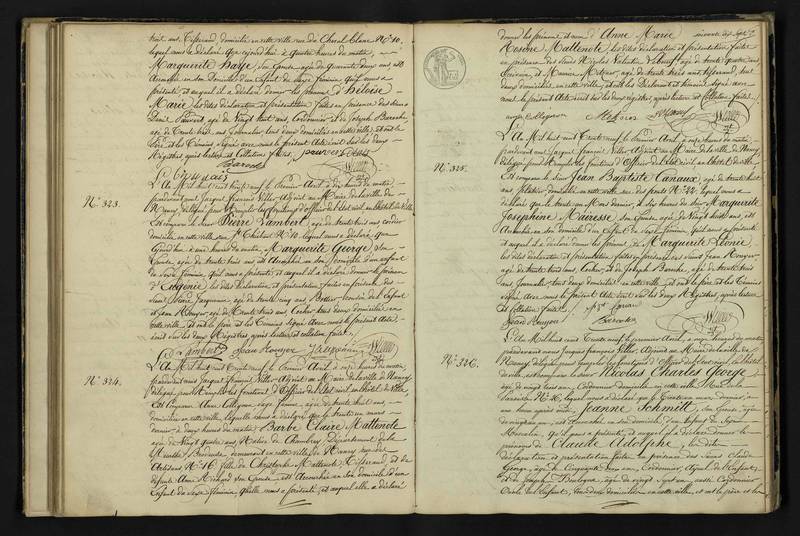 trois ans, Tisserand, domicilié en cette ville rue du Cheval Blanc N.º 10,
lequel nous a déclaré que aujourd'hui à quatre heures du matin,
Marguerite Haye son épouse agée de quarante deux ans, est
accouchée en son domicile d'un Enfant du sexe féminin, qu'il nous a
présenté et auquel il a déclaré donner les prénoms d'Héloïse
Marie, les dites déclaration et présentation faites en présence des sieurs
agé de vingt huit ans, Cordonnier et de Joseph Baroche,
agé de trente trois ans, journalier, tous deux domiciliés en cette ville, et ont le
père et les témoins signé avec nous le présent Acte écrit sur les deux
Registres après lecture et collation faites.
N.º 323.
L'An Mil huit cent trente neuf, le Premier Avril, à dix heures du matin,
pardevant nous Jacques François Adjoint au Maire de la ville de
Nancy, délégué pour remplir les fonctions d'officier de l'état civil en l'hôtel de ville
Est comparu le sieur Pierre Lambert, agé de trente six ans, cordier
domicilié en cette ville, N.º 10, lequel nous a déclaré que
aujourd'hui à une heure du matin, Marguerite George son
épouse agée de trente trois ans est accouchée en son domicile d'un enfant
du sexe féminin, qu'il nous a présenté, et auquel il a déclaré donner le prénom
d'Eugénie, les dites déclaration et présentation faites en présence des
sieurs agé de trente cinq ans, Bottier, cousin de l'enfant
et Jean Rouyer agé de trente trois ans, Cocher tous deux domiciliés en
cette ville, et ont le père et les témoins signé avec nous le présent acte,
écrit sur les deux Registres après lecture et collation faites.
P. Lambert Jean Rouyer
N.º 324.
L'An Mil huit cent trente neuf, le Premier Avril, à onze heures du matin,
pardevant nous Jacques François Adjoint au Maire de la ville de Nancy,
délégué pour remplir les fonctions d'officier de l'état civil en l'hôtel de ville,
Est comparue Anne sage femme agée de trente huit ans,
domiciliée en cette ville, laquelle nous a déclaré que le trente un mars
dernier, à deux heures du matin, Barbe Claire Mattenote
agée de vingt quatre ans, native de Chambrey Département de la
Meurthe, Brodeuse, demeurant en cette ville de Nancy rue des
Artisans N.º 16, fille de Christophe Mattenote, Tisserand et de
défunte Anne Richard son épouse, est accouchée en son domicile d'un
Enfant du sexe féminin, qu'elle nous a présenté, et auquel elle a déclaré
donner les prénoms et nom d'Anne Marie
Rosine Mattenote, les dites déclaration et présentation faites
en présence des sieurs Nicolas Valentin agé de quatre ans,
Ecrivain, et agé de trente trois ans, tisserand, tous
deux domiciliés en cette ville, et ont la déclarante et témoins signé avec
nous le présent Acte écrit sur les deux registres, après lecture et Collation faites.
N.º 325.
L'An Mil huit cent trente neuf, le premier Avril, à onze heures du matin,
pardevant nous Jacques François Adjoint au Maire de la ville de Nancy
délégué pour remplir les fonctions d'officier de l'état civil en l'hôtel de ville,
Est comparu le sieur Jean Baptiste Canaux, agé de trente huit
ans, domicilié en cette ville rue des ponts N.º 22, lequel nous a
déclaré que le trente un Mars dernier, à six heures du soir Marguerite
Josephine Mairesse son épouse agée de vingt huit ans, est
accouchée en son domicile d'un Enfant du sexe féminin, qu'il nous a présenté
et auquel il a déclaré donner les prénoms de Marguerite Léonie,
les dites déclaration et présentation faites en présence des sieurs Jean Rouyer
agé de trente trois ans, Cocher, et de Joseph Baroche, agé de trente trois
ans, Journalier, tous deux domiciliés en cette ville, et ont le père et les témoins
signé avec nous le présent Acte écrit sur les deux Registres, après lecture
et Collation faites.
Jean Rouyer
N.º 326.
L'An Mil huit cent trente neuf, le premier Avril, à onze heures du matin
pardevant nous Jacques François Adjoint au Maire de la ville de
Nancy, délégué pour remplir les fonctions d'officier de l'état civil en l'hôtel
de ville, est comparu le sieur Nicolas Charles George,
agé de vingt six ans, Cordonnier domicilié en cette ville
N.º 16, lequel nous a déclaré que le trente un mars dernier, à
une heure après midi, Jeanne Schmitt, son épouse, agée
de vingt un ans, est accouchée en son domicile d'un Enfant du sexe
Masculin, qu'il nous a présenté, et auquel il a déclaré donner les
prénoms de Claude Adolphe, les dites
déclaration et présentation faites en présence des sieurs Claude
George, agé de cinquante deux ans, Cordonnier, ayeul de l'enfant,
et de Joseph agé de vingt sept ans, aussi Cordonnier
Oncle de l'enfant, tous deux domiciliés en cette ville, et ont le père et les